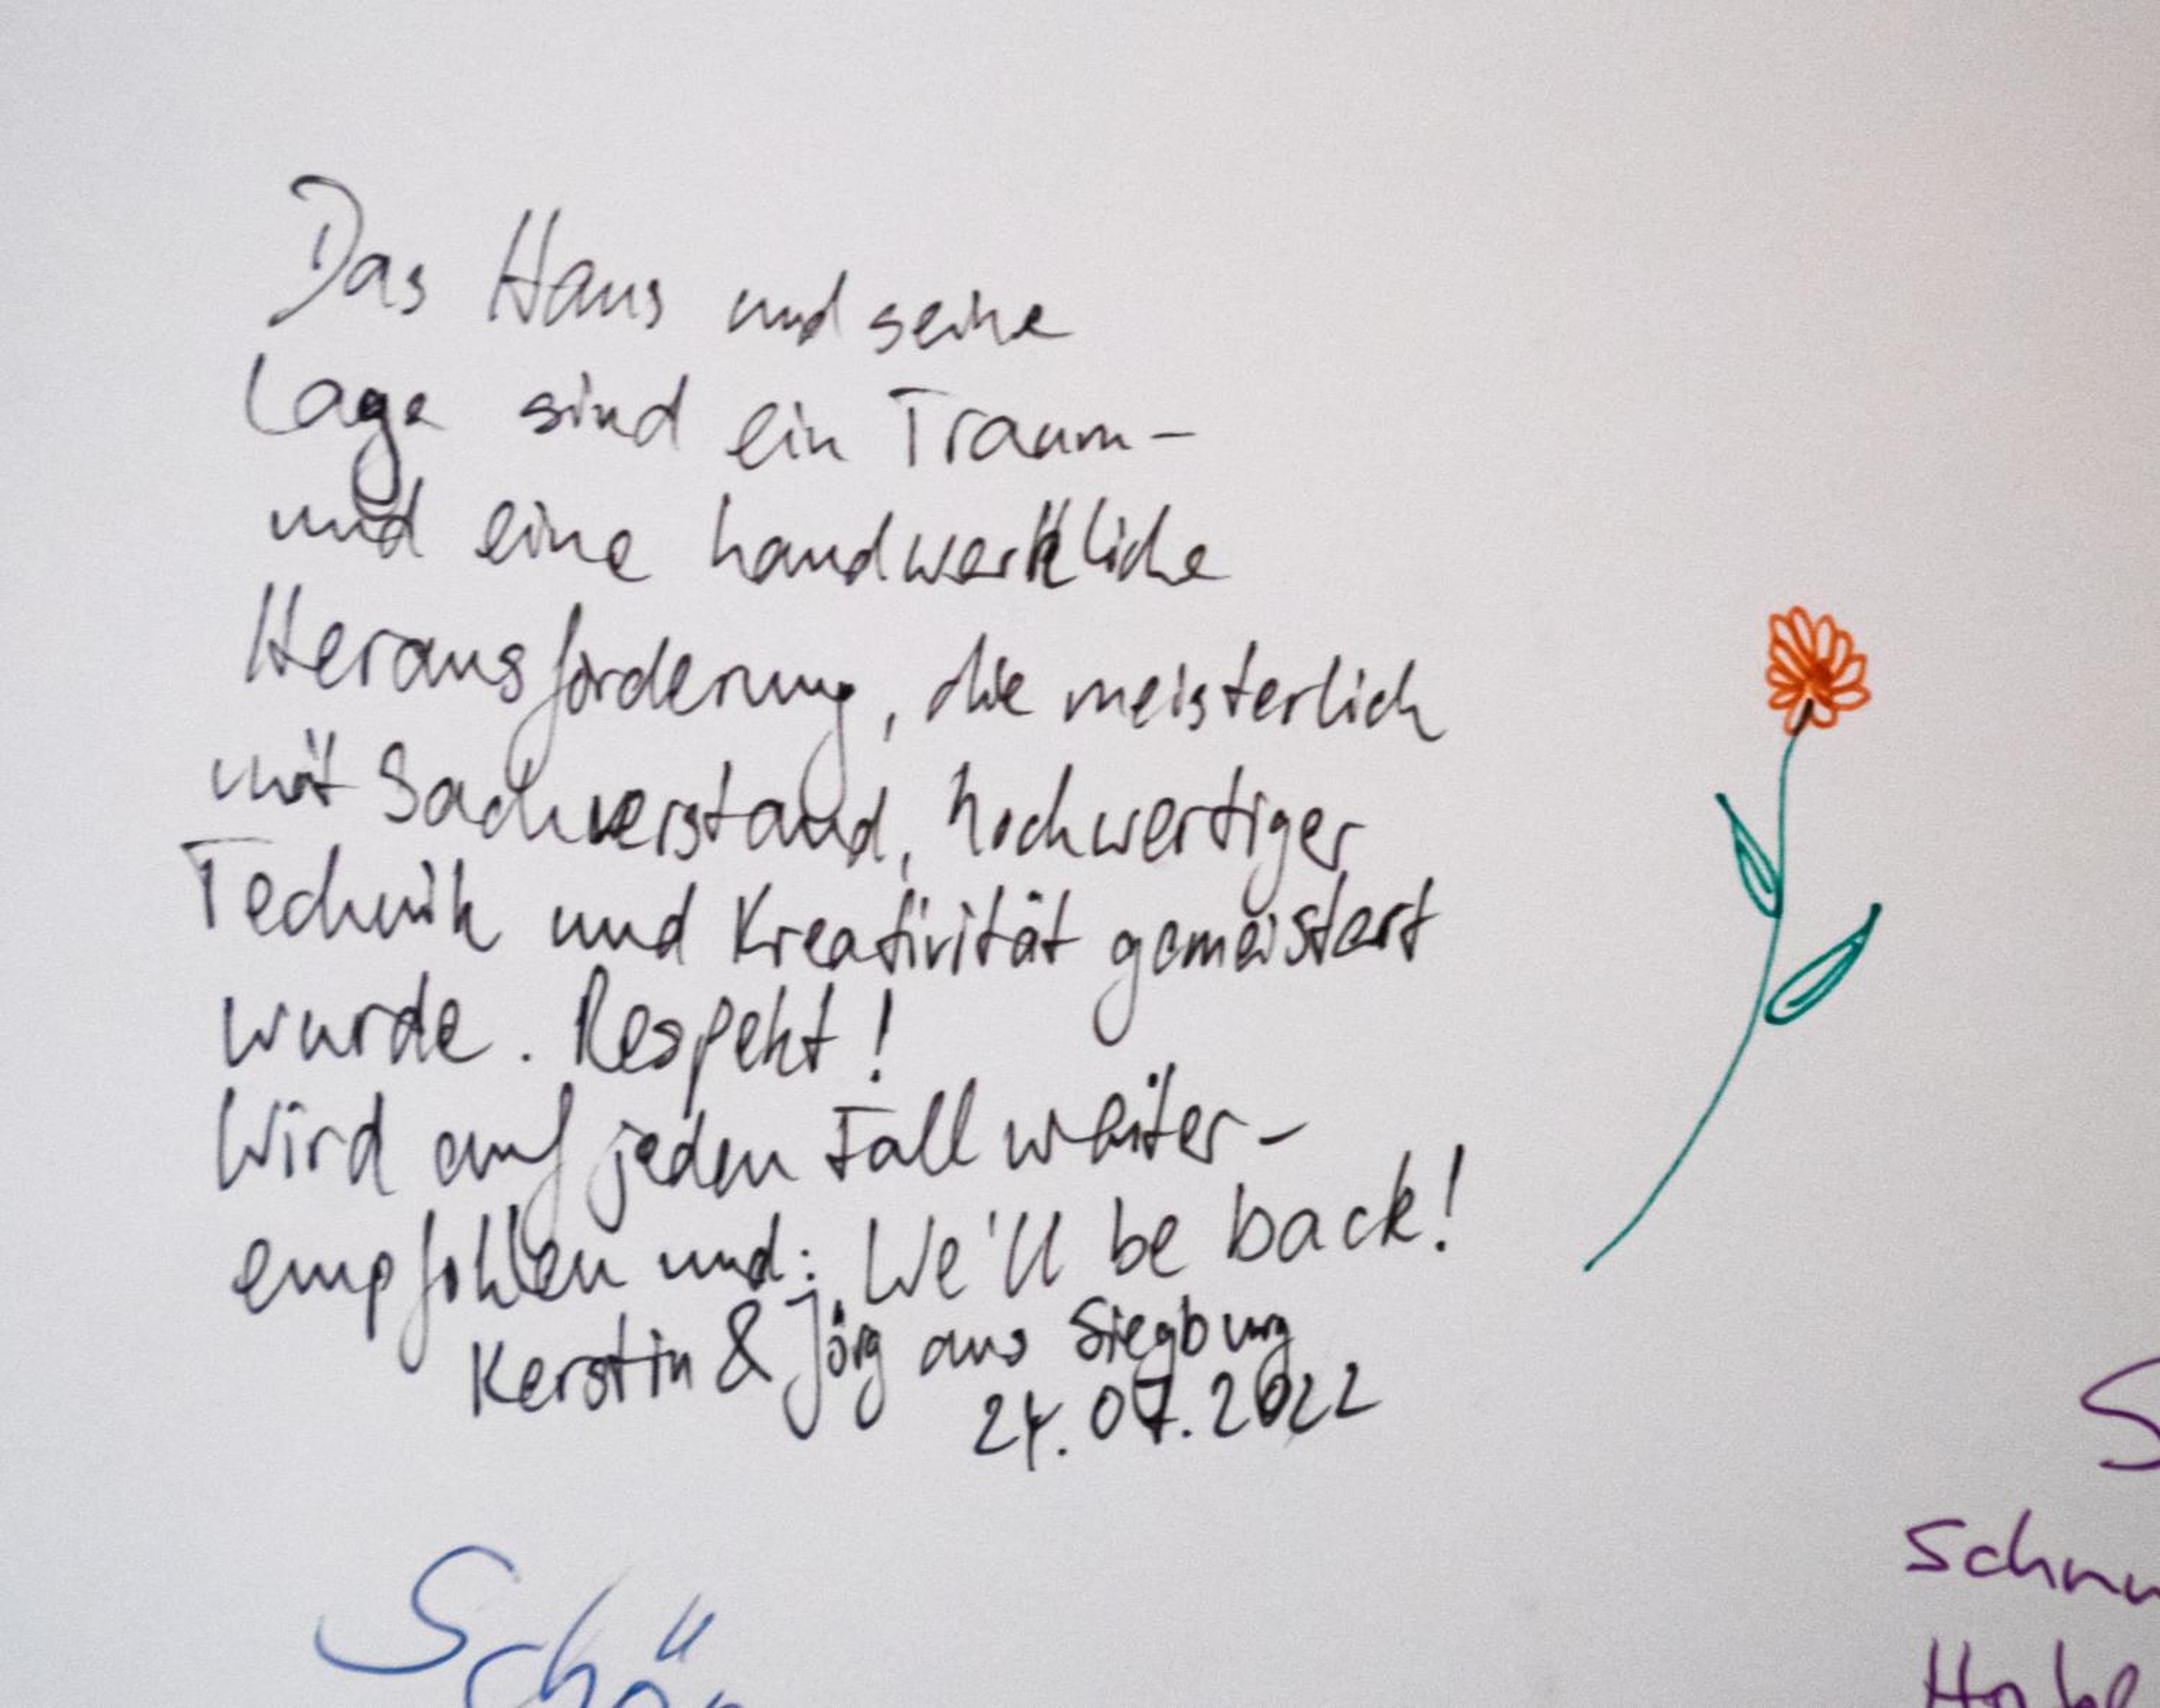 Das Haus und seine
Lage sind ein Traum-
und eine handwerkliche
Herausforderung, die meisterlich
mit Sachverstand, hochwertiger
Technik und Kreativität gemeistert
wurde. Respekt!
Wird auf jeden Fall weiter-
empfohlen und: We'll be back!
Kerstin & Jörg aus Siegburg
24.07.2022